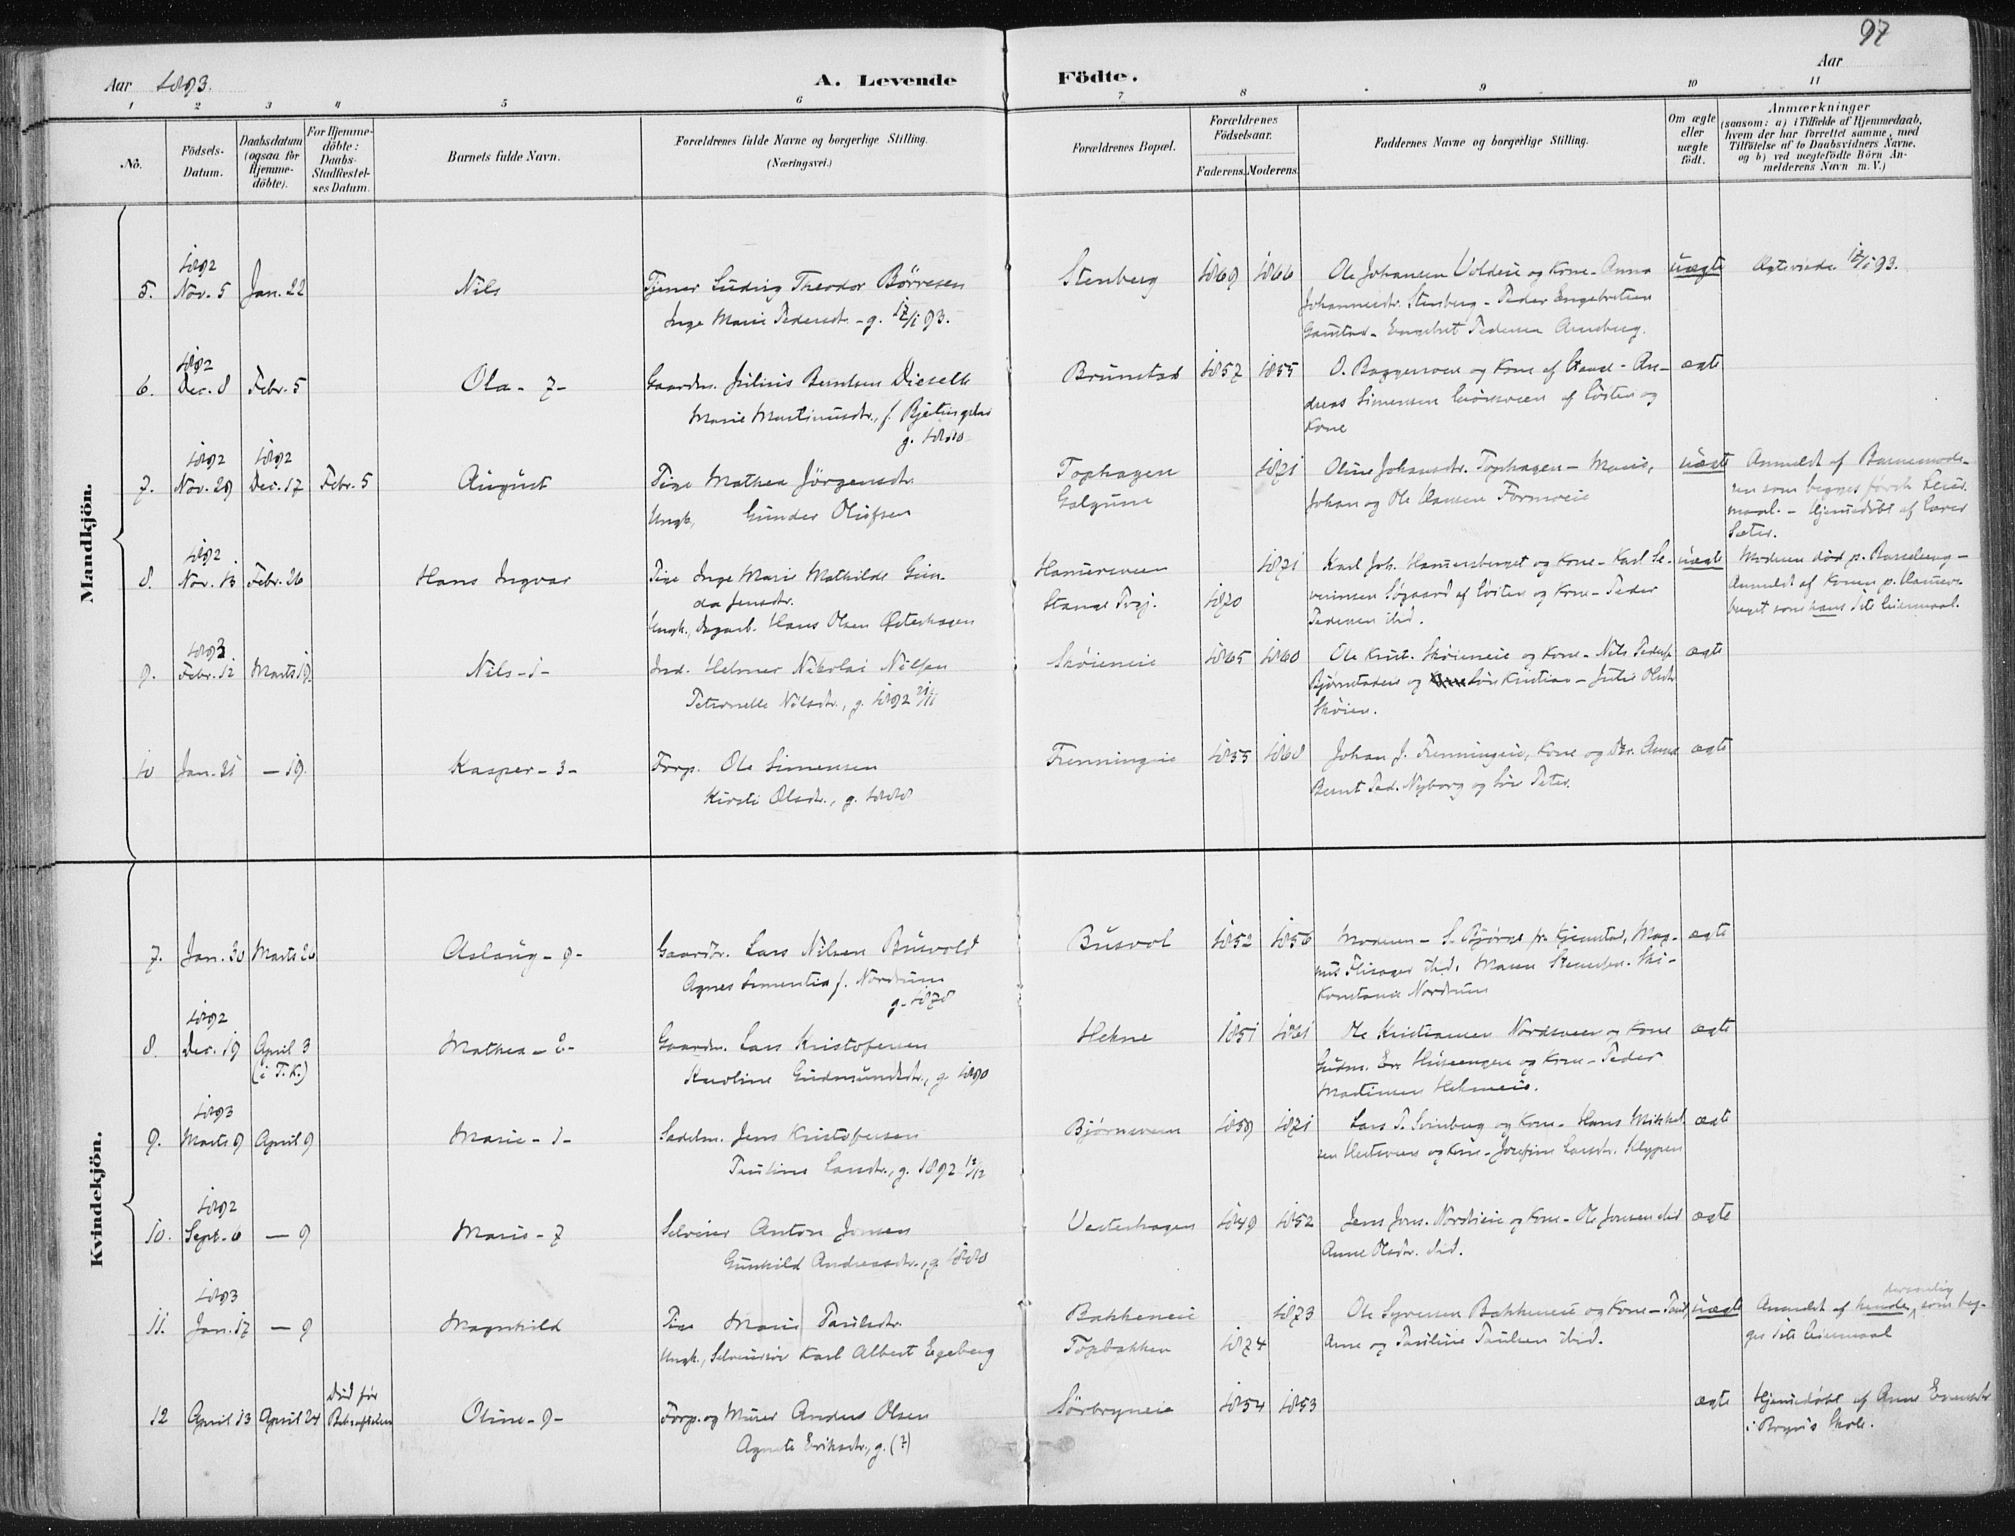 97
Aar 1893.
A. Levende Födte.
Aar
1 2 3 4 5 6 7 8 9 10 11
No.
Födsels-Datum.
Daabsdatum (ogsaa for Hjemme-döbte).
For Hjemme-döbte: Daabs-Stadfæstel-ses Datum.
Barnets fulde Navn.
Forældrenes fulde Navne og borgerlige Stilling.
(Næringsvei.)
Forældrenes Bopæl.
Forældrenes Födselsaar.
Faderens. Moderens.
Faddernes Navne og borgerlige Stilling.
Om ægte eller uægte födt.
Anmærkninger
(saasom: a) i Tilfælde af Hjemmedaab,
hvem der har forrettet samme, med
Tilföielse af to Daabsvidners Navne,
og b) ved uægtefödte Börn An-
melderens Navn m. V.)
Mandkjön.
5. 1892 Nov. 5 Jan. 22 Nils
Tjener Ludvig Theodor Börresen
Inge Marie Pedersdtr. - g. 12/1 93.
Stenberg 1869 1866
Ole Johansen Voldeie og Kone - Anna
Johannesdtr. Stenberg - Peder Engebretsen
Gaustad - Engebret Pedersen
uægte
12/1 93.
6. 1892 Dec. 8 Febr. 5 Ola - 7 -
Gaardm. Julius Berntsen Dieseth
Marie Martinusdtr., f.
g. 1880
Brunstad 1857 1855
O. Baggersveen og Kone af Stange - An-
dreas Simensen af Löiten og
Kone
ægte
7. 1892 Nov. 29 1892 Dec. 17 Febr. 5 August
Pige Mathea Jörgensdtr.
Ungk. Gunder Olufsen
Tophagen
Galgune
1871
Oline Johansdtr. Tophagen - Marie,
Johan og Ole Hansen
uægte
Anmeldt af Barnemode-
ren som begges første Leier-
maal. - Hjemmedöbt af Lærer
Sæter.
8. 1892 Nov. 13 Febr. 26 Hans Ingvar
Pige Inge Marie Mathilde Gun-
da Jensdtr.
Ungk., Dagarb. Hans Olsen Østerhagen
Hamersveen
Stange Prgj.
1870 1871
Karl Joh. Hamersberget og Kone - Karl Se-
verinsen Søgaard af Löiten og Kone - Peder
Pedersen ibid.
uægte
Moderen död p.
Anmeldt af Konen p. Hamers-
berget som hans 1ste Leiermaal.
9. 1893 Febr. 12 Marts 19. Nils - 1 -
Ind. Helmer Nikolai Nilsen
Petronelle Nilsdtr., g. 1892 21/11
Sköieneie 1865 1860
Ole Krist. Sköieneie og Kone - Nils Peders.
Bjørnstadeie og Søn Kristian - Julie Olsdtr.
Skøien.
ægte
10 Jan. 31 — 19. Kasper - 3 -
Forp. Ole Simensen
Kirsti Olsdtr., g. 1888
Frenningeie 1855 1868
Johan J. Frenningeie, Kone og Dtr. Anna
Bernt Ped. Nyborg og Søn Peter.
ægte
Kvindekjön.
7. Jan. 30 Marts 26 Aslaug - 9 -
Gaardbr. Lars Nilsen Busvold
Agnes Simentia f. Nordrum
g. 1878
Busvol 1852 1856
Moderen - S. Björge pr. Kjemstad, Mag-
nus Flisager ibid. Maren
Konstance Nordrum
ægte
8. 1892 Dec. 19 April 3 (i T.K.) Mathea - 2 -
Gaardm. Lars Kristofersen
Karoline Gudmundsdtr., g. 1890
Hekne 1851 1861
Ole Kristiansen Nordsveen og Kone
Gudm. Er. Huseengen og Kone - Peder
Martinsen Hekneeie.
ægte
9. 1893 Marts 9 April 9 Marie - 1 -
Sadelm. Jens Kristofersen
Pauline Larsdtr., g. 1892 12/12
Bjørnsveen 1859 1871
Lars P. Svinberg og Kone - Hans Mikkel-
sen og Kone - Josefine Larsdtr. Kleppen
ægte
10. 1892 Sept. 6 — 9 Marie - 7
Selveier Anton Jonsen
Gunhild Andreasdtr., g. 1880
Vesterhagen 1849 1852
Jens Jons. Nordlieie og Kone - Ole Jonsen ibid
Anne Olsdtr. ibid.
ægte
11. 1893 Jan. 17 — 9 Magnhild
Pige Marie Paulsdtr.
Ungk., Selveiersön Karl Albert Egeberg
Bakkeneie
Topbakken
1874 1873
Ole Syversen Bakkeneie og Kone - Paul,
Anne og Pauline Paulsen ibid.
uægte
Anmeldt af hende personlig, som beg-
ges 1ste Leiermaal
12 April 13 April 24 Död før Bekræftelsen Oline - 9 -
Forp. og Murer Anders Olsen
Agnete Eriksdtr., g. (?)
Sörbryneie 1854 1853
ægte
Hjemmedöbt af Anne Evensdtr
i Bryni Skole.